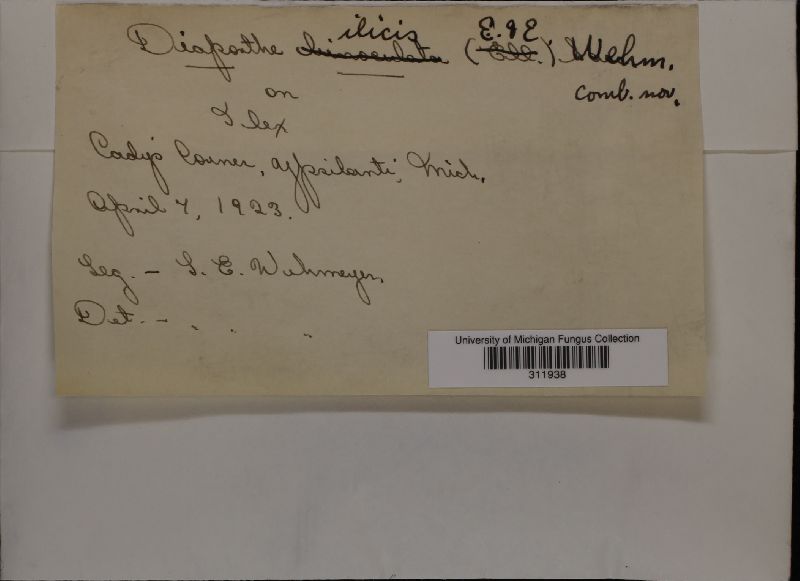 Diaporthe ilicis (E. & E.) Wehm.
comb. nov.
on
Ilex
Cady's Corner, Ypsilanti, Mich.
April 7, 1923.
Leg. - L. E. Wehmeyer.
Det. - " " "
University of Michigan Fungus Collection
311938